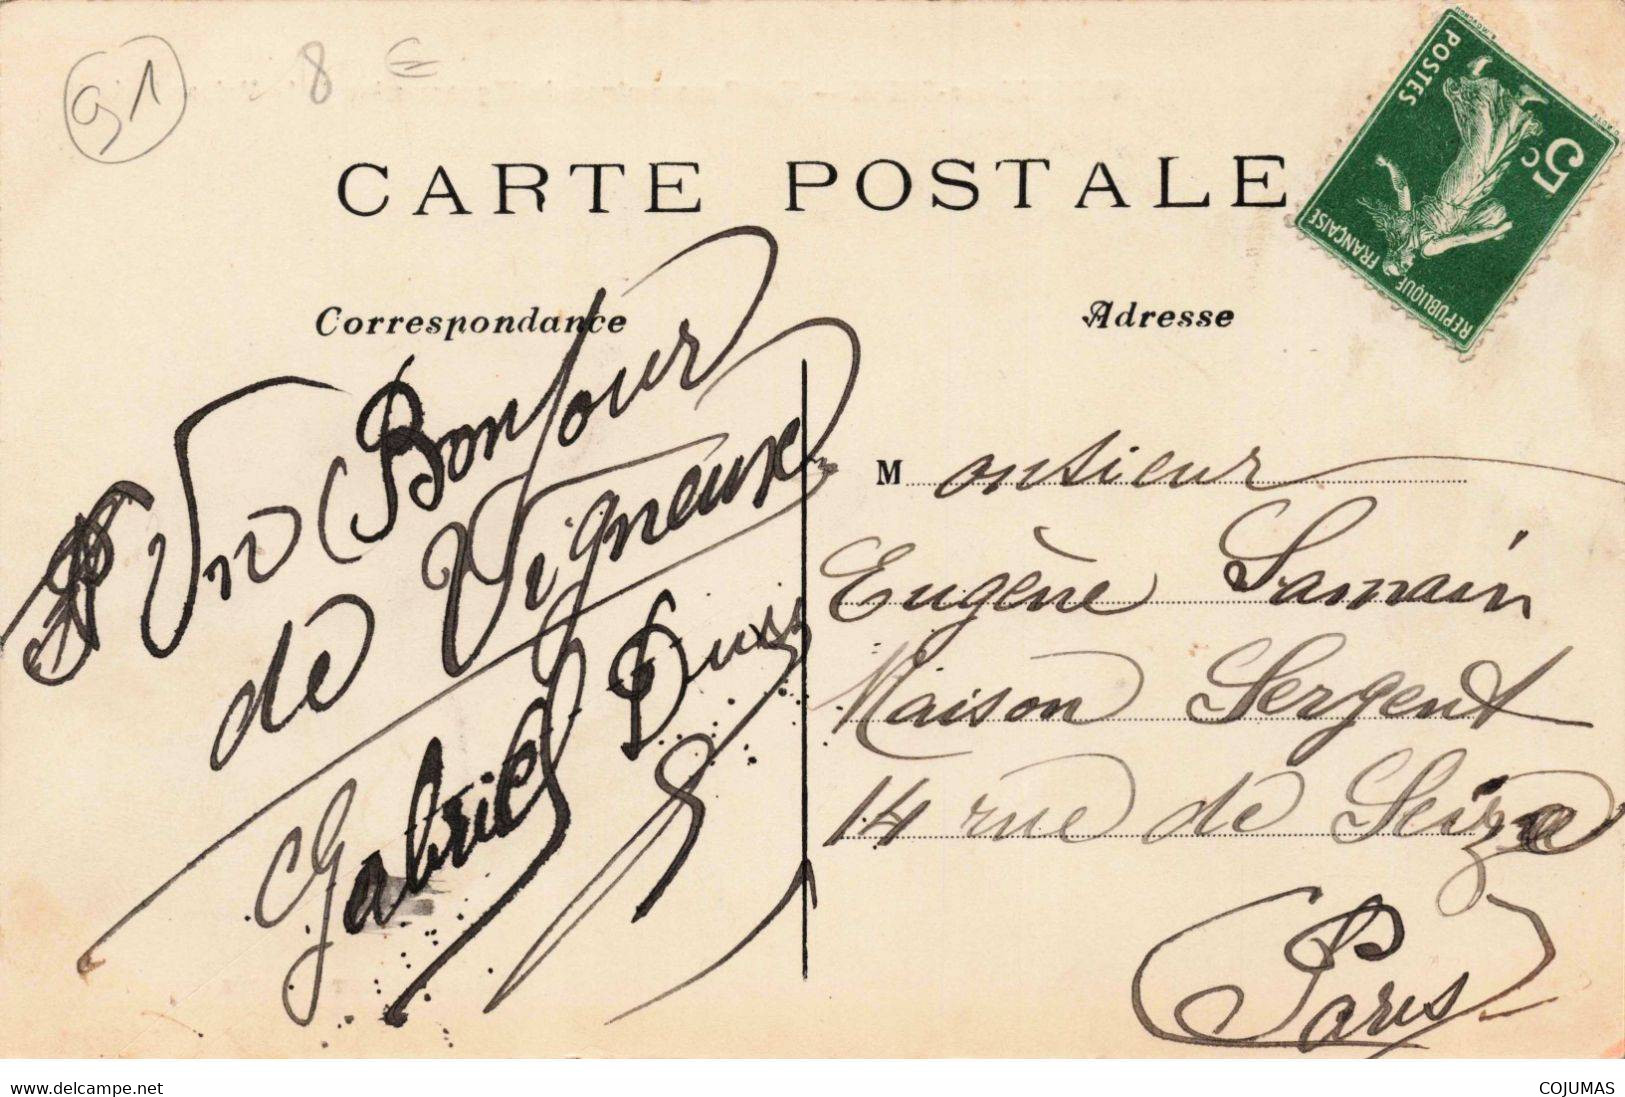 91
8 €
CARTE POSTALE
POSTES
5c
REPUBLIQUE FRANÇAISE
Correspondance
Adresse
Un Bonjour
de Vigneux
Gabriel
Monsieur
Eugène Samain
Maison Sergent
14 rue de Seize
Paris
www.delcampe.net
COJUMAS